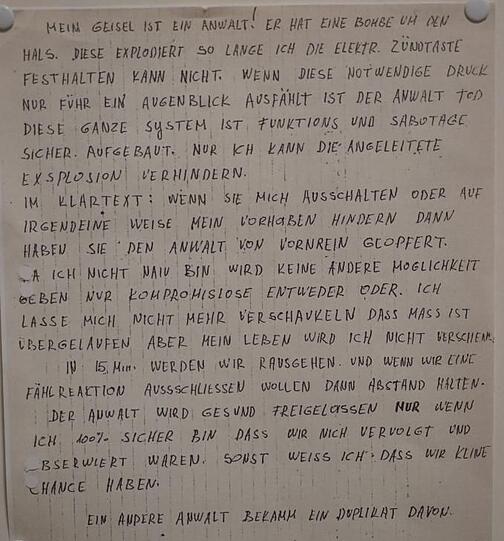 MEIN GEISEL IST EIN ANWALT! ER HAT EINE BOMBE UM DEN
HALS. DIESE EXPLODIERT SO LANGE ICH DIE ELEKTR. ZÜNDTASTE
FESTHALTEN KANN NICHT. WENN DIESE NOTWENDIGE DRUCK
NUR FÜHR EIN AUGENBLICK AUSFÄHLT IST DER ANWALT TOD
DIESE GANZE SYSTEM IST FUNKTIONS UND SABOTAGE
SICHER. AUFGEBAUT. NUR ICH KANN DIE ANGELEITETE
EXSPLOSION VERHINDERN.
IM KLARTEXT: WENN SIE MICH AUSSCHALTEN ODER AUF
IRGENDEINE WEISE MEIN VORHABEN HINDERN DANN
HABEN SIE DEN ANWALT VON VORNREIN GEOPFERT.
A ICH NICHT NAIV BIN WIRD KEINE ANDERE MÖGLICHKEIT
GEBEN NUR KOMPROMISLOSE ENTWEDER ODER. ICH
LASSE MICH NICHT MEHR VERSCHAUKELN DASS MASS IST
ÜBERGELAUFEN ABER MEIN LEBEN WIRD ICH NICHT VERSCHENK.
IN 15. Min. WERDEN WIR RAUSGEHEN. UND WENN WIR EINE
FÄHLREAKTION AUSSSCHLIESSEN WOLLEN DANN ABSTAND HALTEN.
DER ANWALT WIRD GESUND FREIGELASSEN NUR WENN
ICH 100% SICHER BIN DASS WIR NICH VERVOLGT UND
BSERWIERT WAREN. SONST WEISS ICH DASS WIR KLINE
CHANCE HABEN.
EIN ANDERE ANWALT BEKAMM EIN DUPLIKAT DAVON.